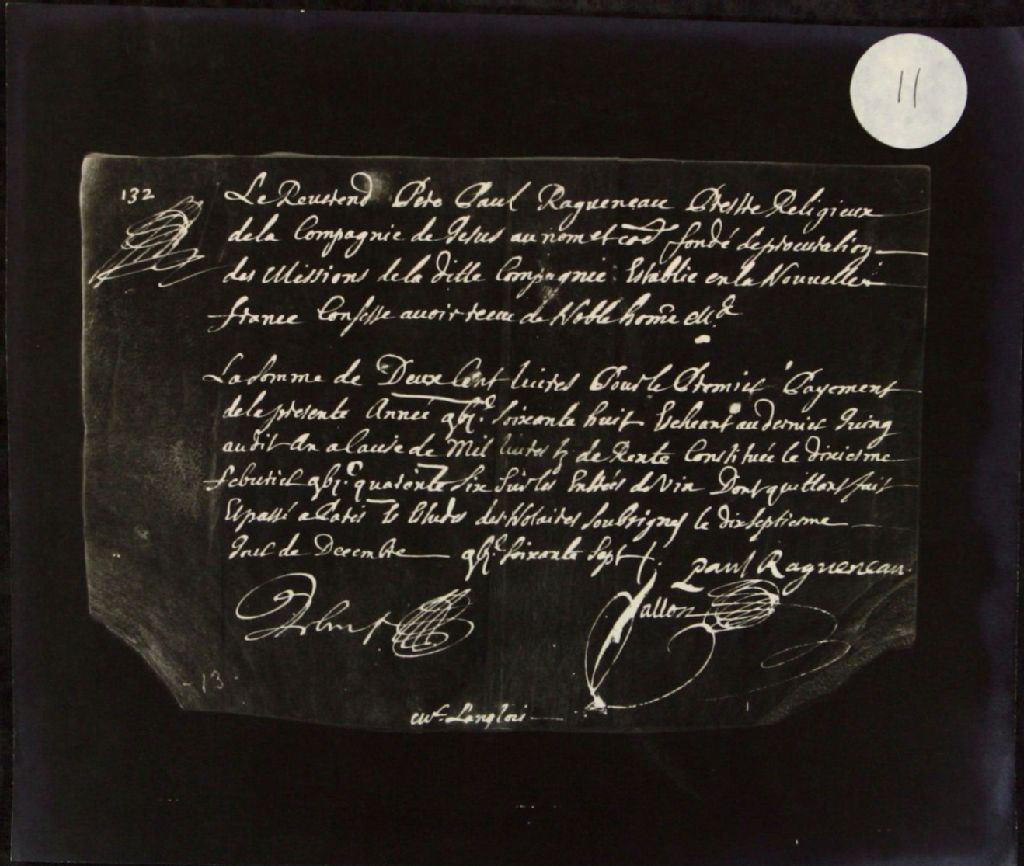 11
132
Le Reverend Pere Paul Ragueneau Prestre Religieux
de la Compagnie de Jesus au nom et fondé de procuration
des Missions de la ditte Compagnie Establie en la Nouvelle
france Confesse avoir receu de Noble home Me
La somme de Deux Cent livres Pour le Premier Payement
de la presente Année soixante huit Escheant au dernier Juing
audit An a Cause de Mil livres de Rente Constituée le dixiesme
febvrier quarente six sur les Entrées de Vin Dont quittance fait
Et passé a Paris Es Etudes des Notaires soubsignes le dix septiesme
Jour de Decembre soixante sept
paul Ragueneau
Vallon
Mr. Langlois
13